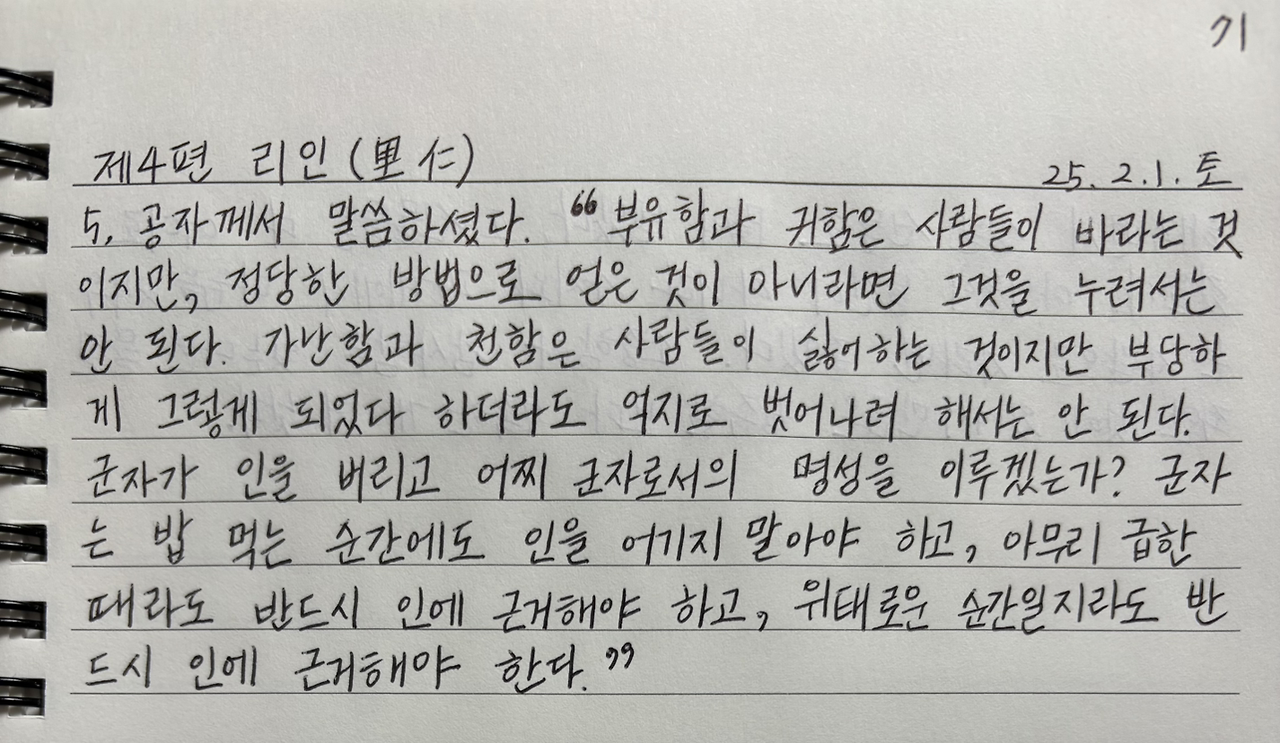 71
제4편 리인(里仁) 25.2.1.토
5. 공자께서 말씀하셨다. "부유함과 귀함은 사람들이 바라는 것
이지만, 정당한 방법으로 얻은 것이 아니라면 그것을 누려서는
안 된다. 가난함과 천함은 사람들이 싫어하는 것이지만 부당하
게 그렇게 되었다 하더라도 억지로 벗어나려 해서는 안 된다.
군자가 인을 버리고 어찌 군자로서의 명성을 이루겠는가? 군자
는 밥 먹는 순간에도 인을 어기지 말아야 하고, 아무리 급한
때라도 반드시 인에 근거해야 하고, 위태로운 순간일지라도 반
드시 인에 근거해야 한다."